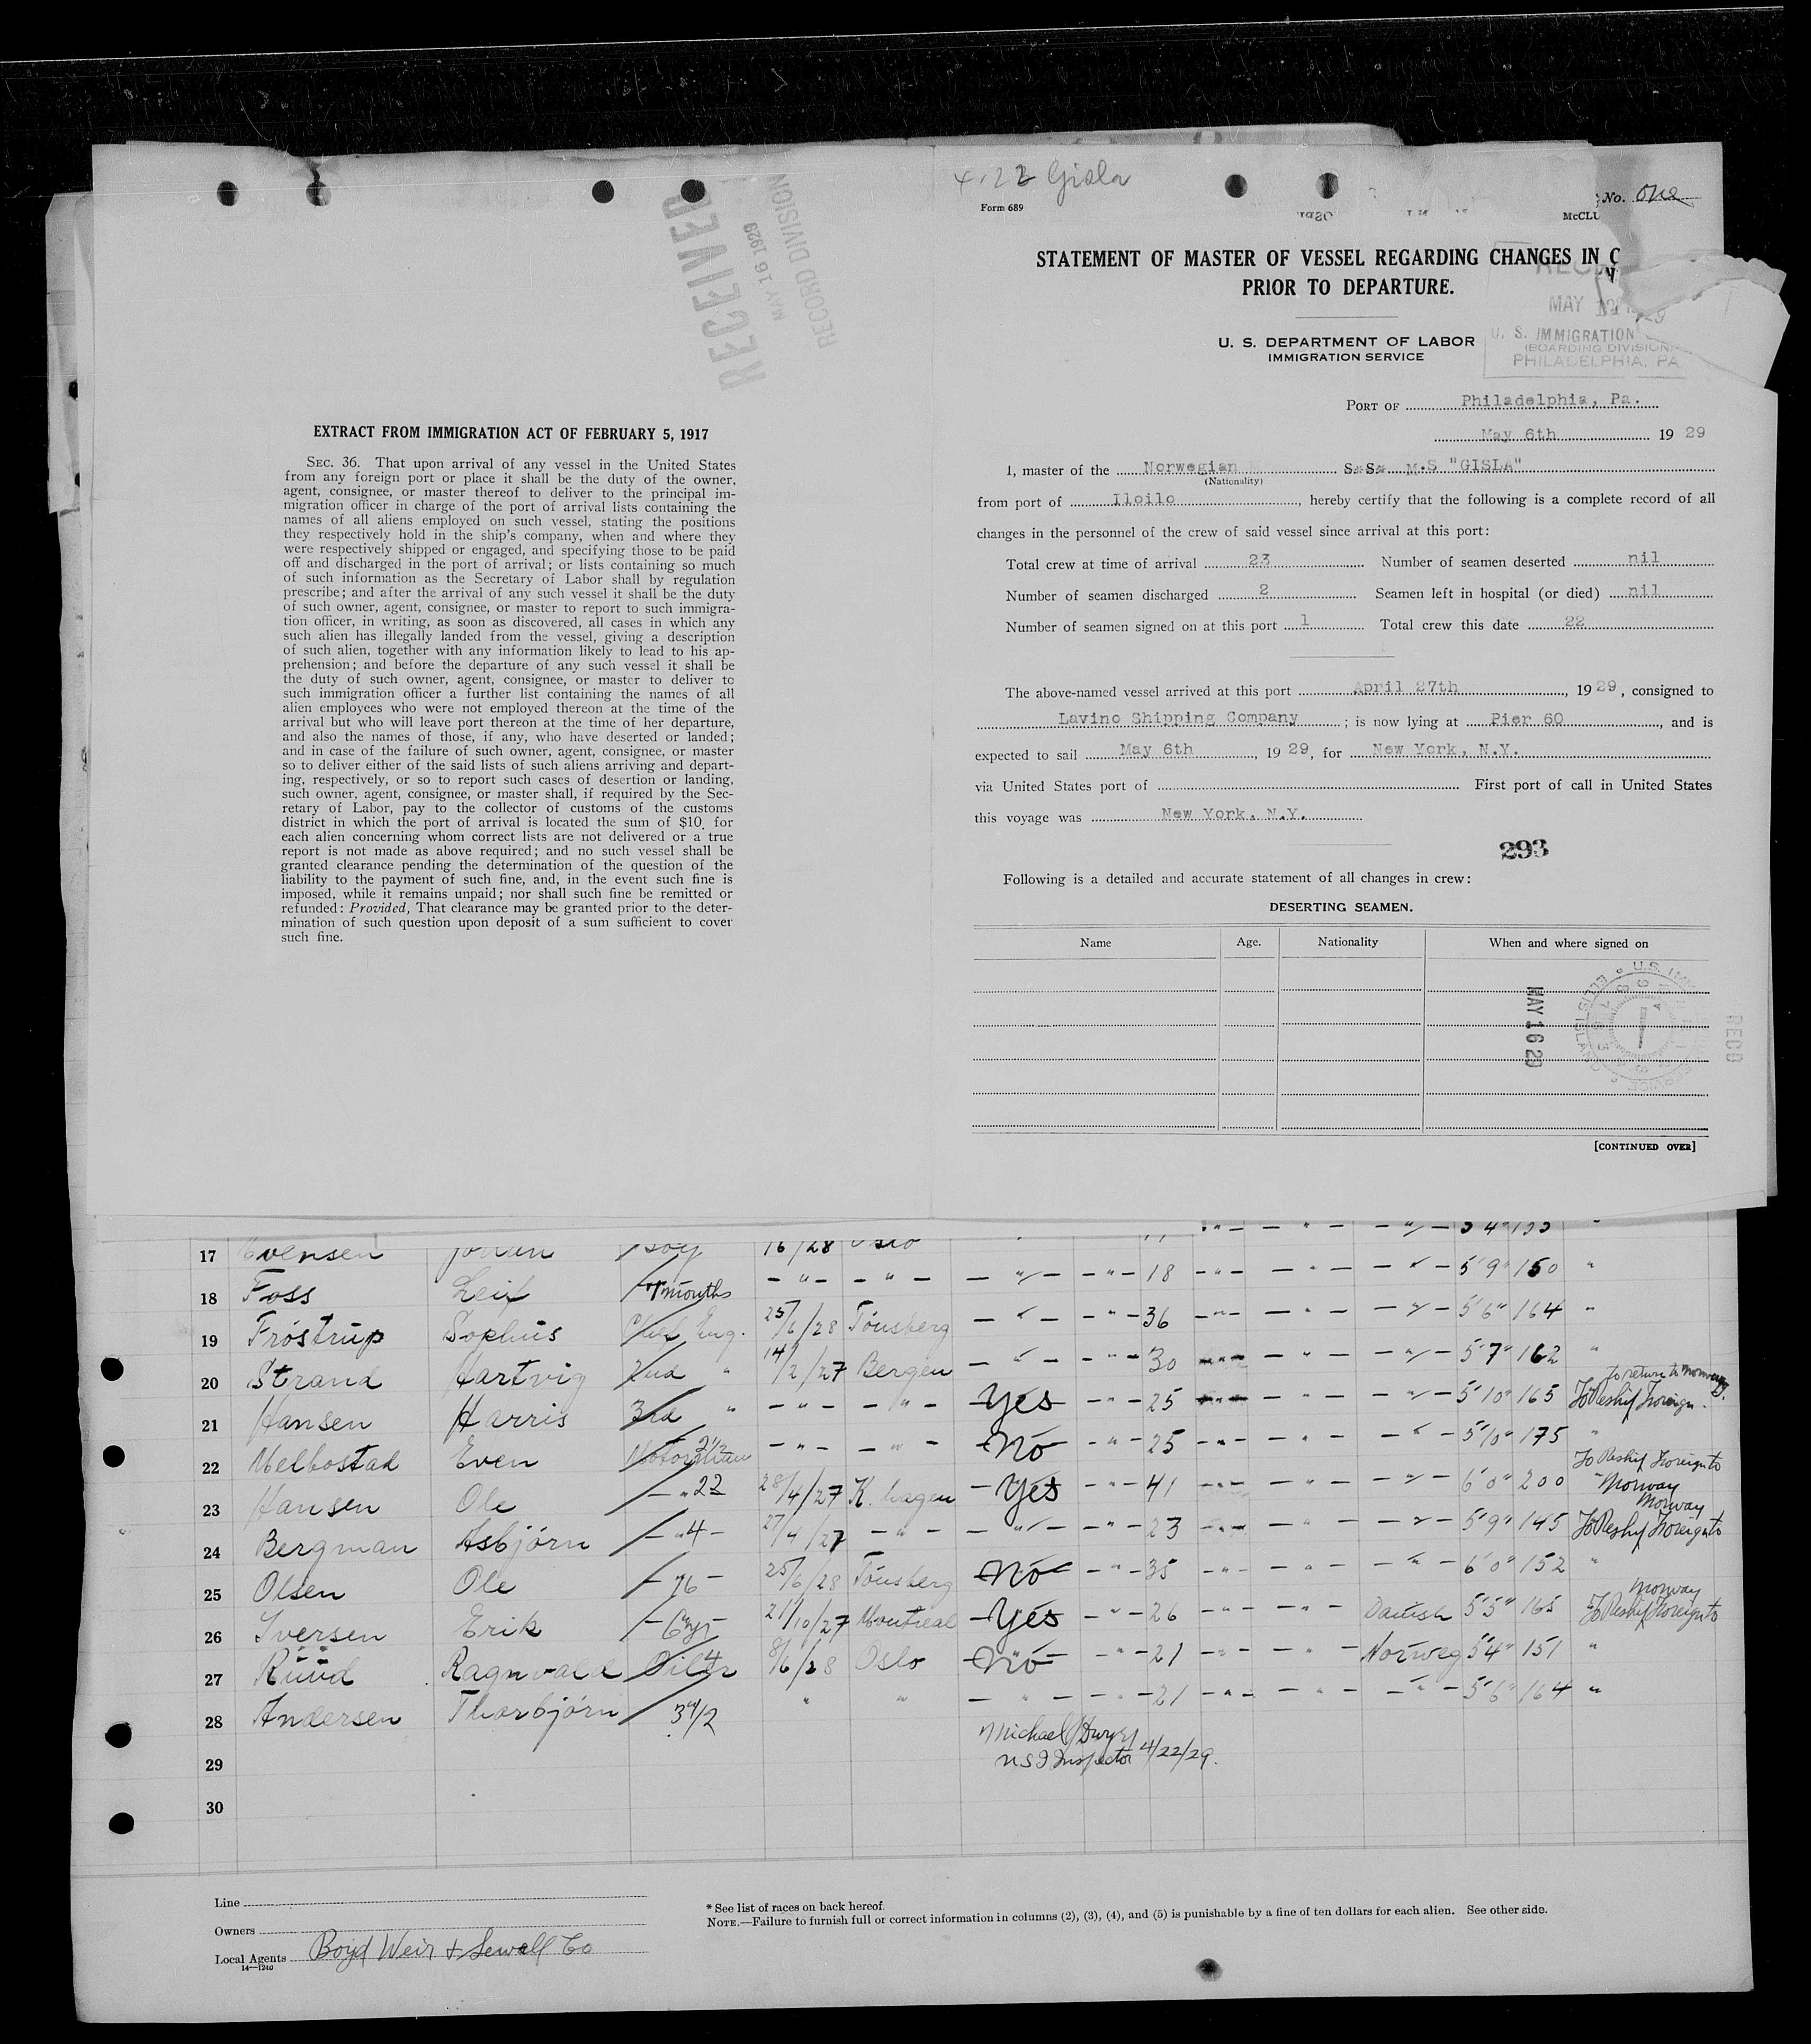 4.22 Gisla
Form 689
No. one
McCLU
RECEIVED
MAY 16 1929
RECORD DIVISION
STATEMENT OF MASTER OF VESSEL REGARDING CHANGES IN C
PRIOR TO DEPARTURE.
MAY
U. S. DEPARTMENT OF LABOR
IMMIGRATION SERVICE
U. S. IMMIGRATION
(BOARDING DIVISION)
PHILADELPHIA, PA
PORT OF Philadelphia, Pa.
May 6th 1929
I, master of the Norwegian S.S. M.S "GISLA"
(Nationality)
from port of Iloilo, hereby certify that the following is a complete record of all
changes in the personnel of the crew of said vessel since arrival at this port:
Total crew at time of arrival 23 Number of seamen deserted nil
Number of seamen discharged 2 Seamen left in hospital (or died) nil
Number of seamen signed on at this port 1 Total crew this date 22
The above-named vessel arrived at this port April 27th, 1929, consigned to
Lavino Shipping Company; is now lying at Pier 60, and is
expected to sail May 6th, 1929, for New York, N.Y.
via United States port of First port of call in United States
this voyage was New York, N.Y.
293
Following is a detailed and accurate statement of all changes in crew:
DESERTING SEAMEN.
Name Age. Nationality When and where signed on
MAY 16 29
RECD
[CONTINUED OVER]
EXTRACT FROM IMMIGRATION ACT OF FEBRUARY 5, 1917
SEC. 36. That upon arrival of any vessel in the United States
from any foreign port or place it shall be the duty of the owner,
agent, consignee, or master thereof to deliver to the principal im-
migration officer in charge of the port of arrival lists containing the
names of all aliens employed on such vessel, stating the positions
they respectively hold in the ship's company, when and where they
were respectively shipped or engaged, and specifying those to be paid
off and discharged in the port of arrival; or lists containing so much
of such information as the Secretary of Labor shall by regulation
prescribe; and after the arrival of any such vessel it shall be the duty
of such owner, agent, consignee, or master to report to such immigra-
tion officer, in writing, as soon as discovered, all cases in which any
such alien has illegally landed from the vessel, giving a description
of such alien, together with any information likely to lead to his ap-
prehension; and before the departure of any such vessel it shall be
the duty of such owner, agent, consignee, or master to deliver to
such immigration officer a further list containing the names of all
alien employees who were not employed thereon at the time of the
arrival but who will leave port thereon at the time of her departure,
and also the names of those, if any, who have deserted or landed;
and in case of the failure of such owner, agent, consignee, or master
so to deliver either of the said lists of such aliens arriving and depart-
ing, respectively, or so to report such cases of desertion or landing,
such owner, agent, consignee, or master shall, if required by the Sec-
retary of Labor, pay to the collector of customs of the customs
district in which the port of arrival is located the sum of $10 for
each alien concerning whom correct lists are not delivered or a true
report is not made as above required; and no such vessel shall be
granted clearance pending the determination of the question of the
liability to the payment of such fine, and, in the event such fine is
imposed, while it remains unpaid; nor shall such fine be remitted or
refunded: Provided, That clearance may be granted prior to the deter-
mination of such question upon deposit of a sum sufficient to cover
such fine.
17 Evensen Johan Boy 16/28 Oslo
18 Foss Leif 7 months - " - - " - - " - - " - 18 - " - - " - - " - 5'9" 150 "
19 Fröstrup Sophus Chief Eng. 25/6/28 Tönsberg - " - - " - 36 - " - - " - - " - 5'6" 164 "
20 Strand Hartvig 2nd " 14/2/27 Bergen - " - - " - 30 - " - - " - 5'7" 162 "
21 Hansen Harris 3rd " - " - - " - Yes - " - 25 - " - - " - 5'10" 165 To Reship Foreign. to return to Norway.
22 Melbostad Even Motorman - " - - " - No - " - 25 - " - - " - - " - 5'10" 175 "
23 Hansen Ole - " 22 28/4/27 K. hagen - Yes - " - 41 - " - - " - - " - 6'0" 200 To Reship Foreign to Norway
24 Bergman Asbjörn - " 4 - 27/4/27 - " - - " - - " - 23 - " - - " - - " - 5'9" 145 To Reship Foreign to Norway
25 Olsen Ole - 76 - 25/6/28 Tönsberg No - " - 35 - " - - " - - " - 6'0" 152 "
26 Iversen Erik - 6 yr - 21/10/27 Montreal - Yes - " - 26 - " - - " - Danish 5'5" 165 To Reship Foreign to Norway
27 Rüüd Ragnvald Oiler 4 8/6/28 Oslo No - " - 21 - " - - " - Norweg 5'4" 151 "
28 Andersen Thorbjörn 3 1/2 " " - " - - " - 21 - " - - " - - " - 5'6" 164 "
Michael Dwyer
29 U S I Inspector 4/22/29.
30
Line
Owners
Local Agents Boyd Weir & Sewall Co
14—1240
* See list of races on back hereof.
NOTE.—Failure to furnish full or correct information in columns (2), (3), (4), and (5) is punishable by a fine of ten dollars for each alien. See other side.